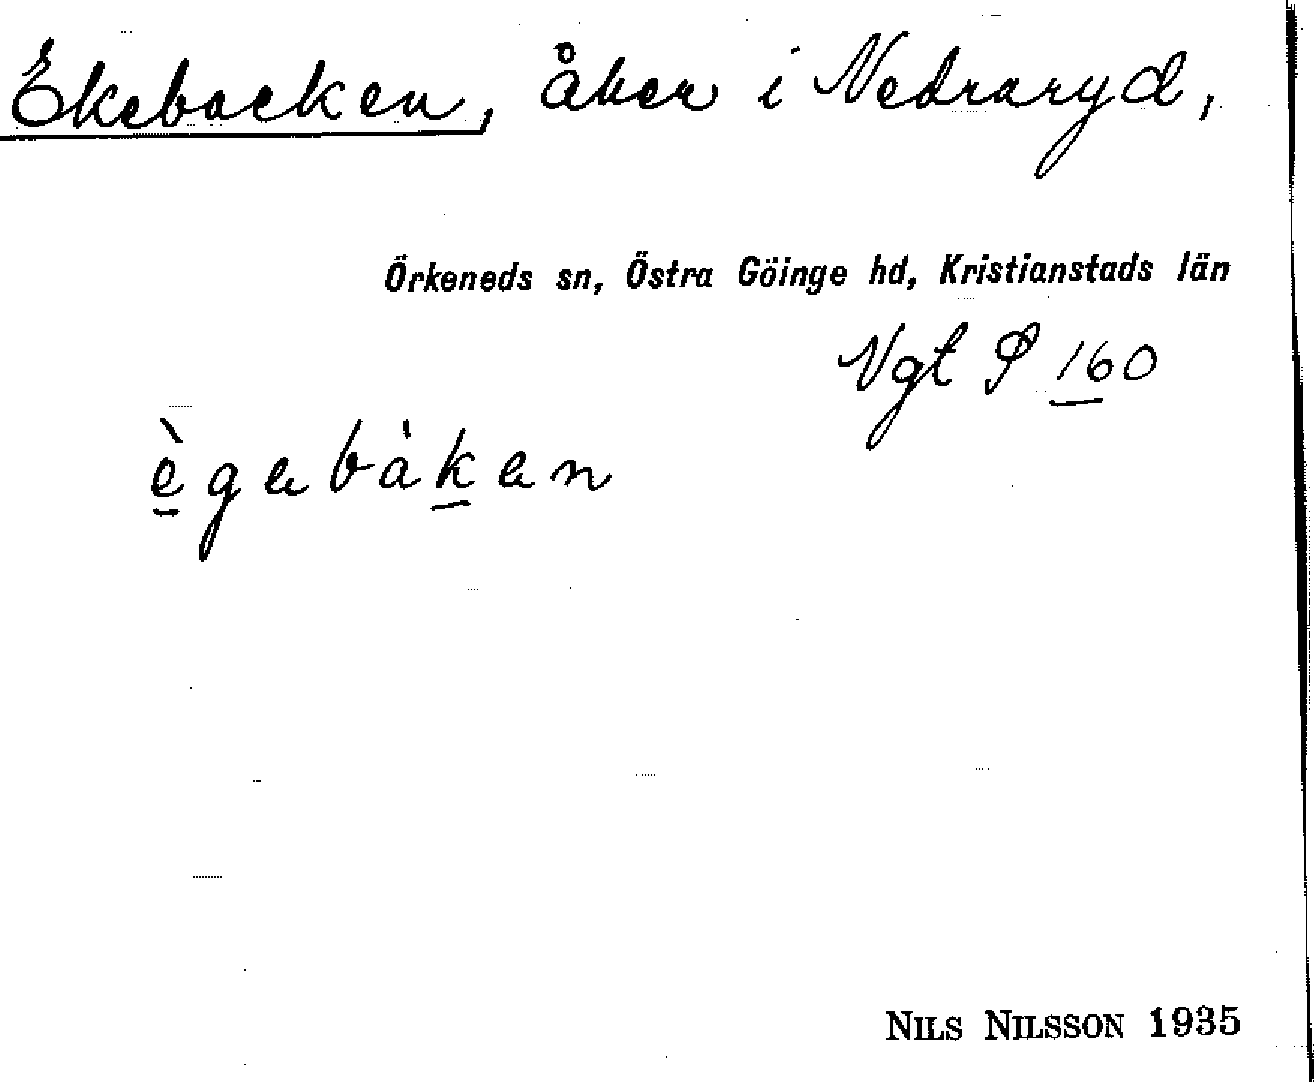 Ekebacken, åker i Nedraryd,
Örkeneds sn, Östra Göinge hd, Kristianstads län
Vgt S 160
ègabàkan
NILS NILSSON 1935